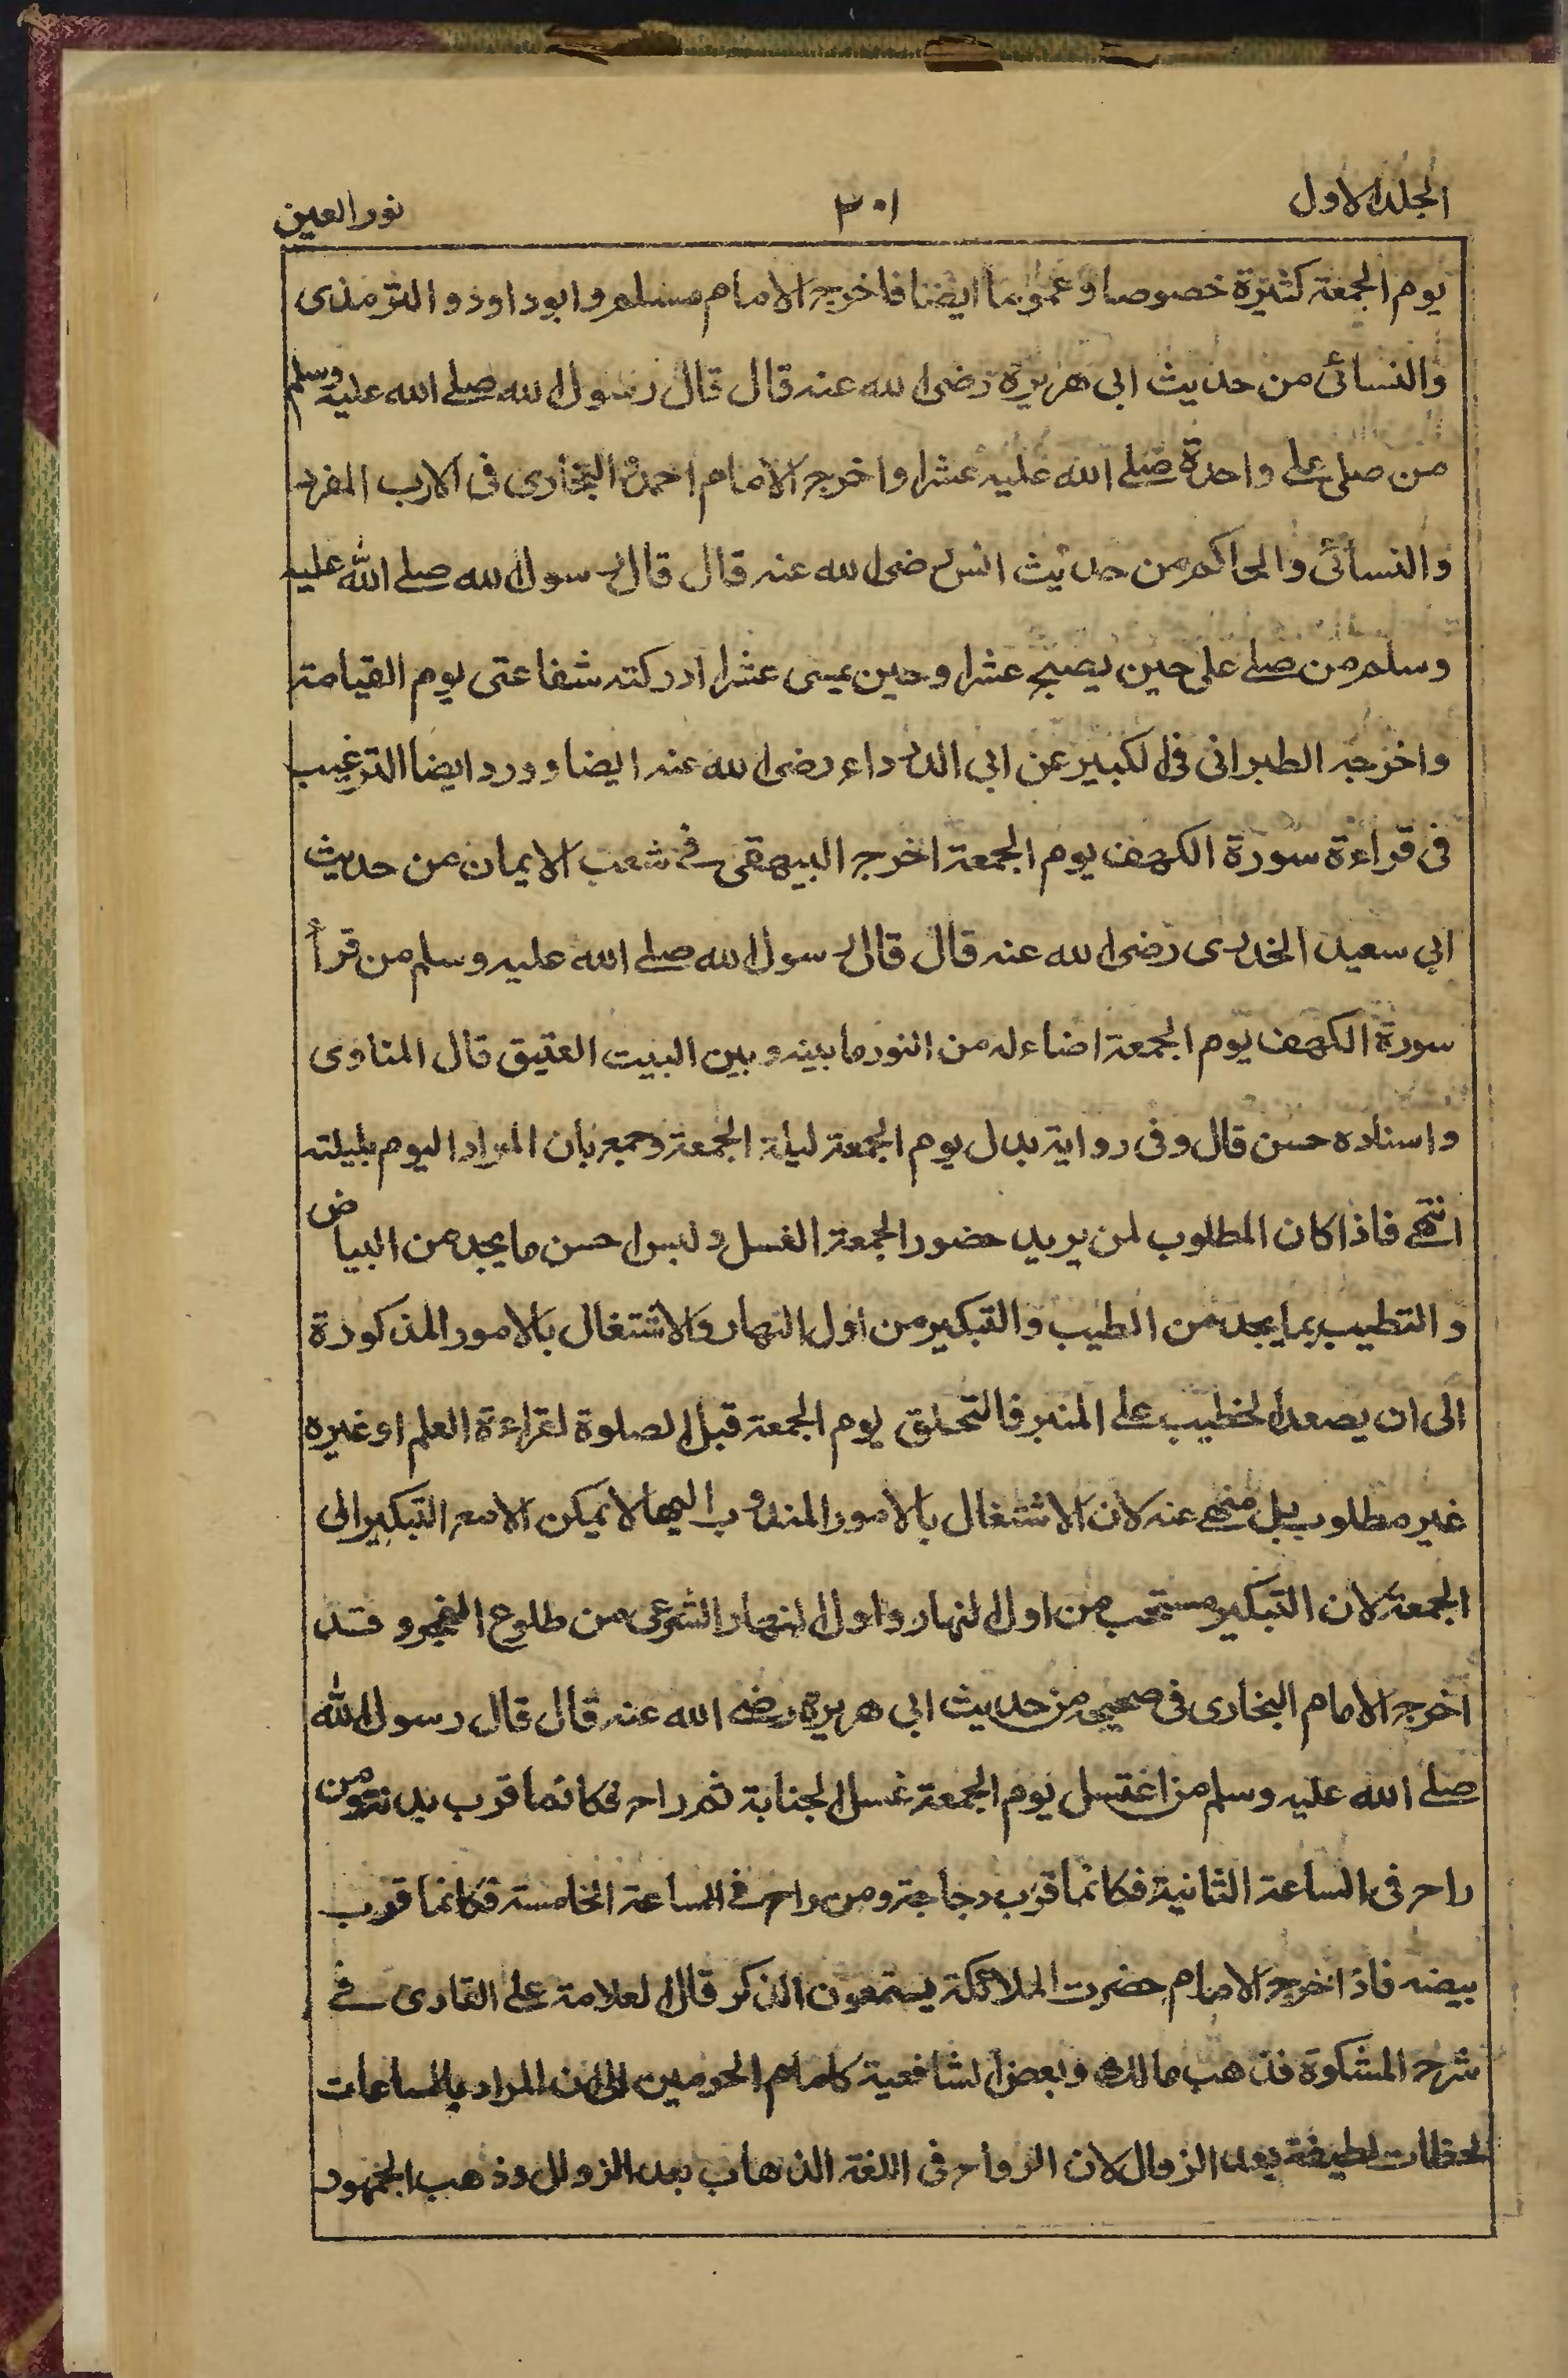 الجلد الاول ٣٠١ نور العين
يوم الجمعة كثيرة خصوصا وعموما ايضا فاخرجه الامام مسلم وابو داود والترمذى
والنسائى من حديث ابى هريرة رضى الله عنه قال قال رسول الله صلے الله عليه وسلم
من صلى على واحدة صلے الله عليه عشرا واخرجه الامام احمد والبخارى فى الادب المفرد
والنسائى والحاكم من حديث انس رضى الله عنه قال قال رسول الله صلے الله عليه
وسلم من صلے على حين يصبح عشرا وحين يمسى عشرا ادركته شفاعتى يوم القيامة
واخرجه الطبرانى فى الكبير عن ابى الدرداء رضى الله عنه ايضا وورد ايضا الترغيب
فى قراءة سورة الكهف يوم الجمعة اخرجه البيهقى فے شعب الايمان من حديث
ابى سعيد الخدرى رضى الله عنه قال قال رسول الله صلے الله عليه وسلم من قرأ
سورة الكهف يوم الجمعة اضاء له من النور ما بينه وبين البيت العتيق قال المناوى
واسناده حسن قال وفى رواية بدل يوم الجمعة ليلة الجمعة وجمع بان المراد اليوم بليلته
انتهے فاذا كان المطلوب لمن يريد حضور الجمعة الغسل ولبس احسن ما يجد من البياض
والتطيب بما يجد من الطيب والتبكير من اول النهار والاشتغال بالامور المذكورة
الى ان يصعد الخطيب علے المنبر فالتحلق يوم الجمعة قبل الصلوة لقراءة العلم او غيره
غير مطلوب بل منهے عنه لان الاشتغال بالامور المندوب اليها لا يمكن الا مع التبكير الى
الجمعة لان التبكير مستحب من اول النهار واول النهار الشرعى من طلوع الفجر وقد
اخرجه الامام البخارى فى صحيحه من حديث ابى هريرة رضے الله عنه قال قال رسول الله
صلے الله عليه وسلم من اغتسل يوم الجمعة غسل الجنابة ثم راح فكانما قرب بدنة ومن
راح فى الساعة الثانية فكانما قرب دجاجة ومن راح فے الساعة الخامسة فكانما قرب
بيضه فاذا خرج الامام حضرت الملائكة يستمعون الذكر قال العلامة علے القارى فے
شرح المشكوة فذهب مالك وبعض الشافعية كامام الحرمين الى ان المراد بالساعات
لحظات لطيفة بعد الزوال لان الرواح فى اللغة الذهاب بعد الزوال وذهب الجمهور